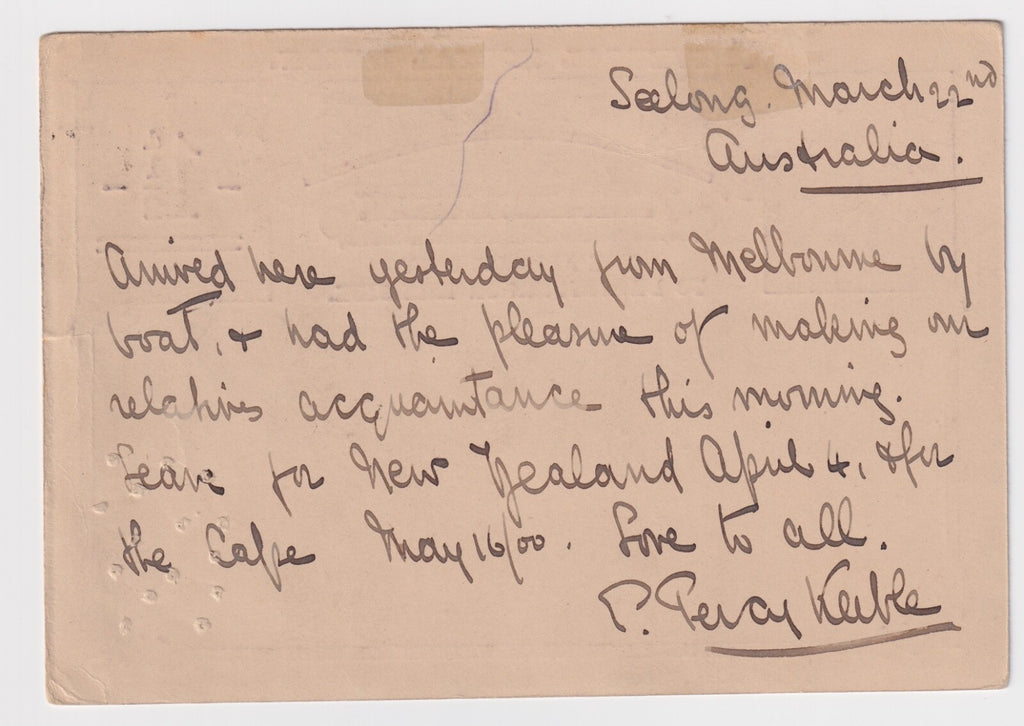 Geelong. March 22nd
Australia.
Arrived here yesterday from Melbourne by
boat, & had the pleasure of making our
relatives acquaintance this morning.
Leave for New Zealand April 4, & for
the Cape May 16/00. Love to all.
T. Percy Keeble